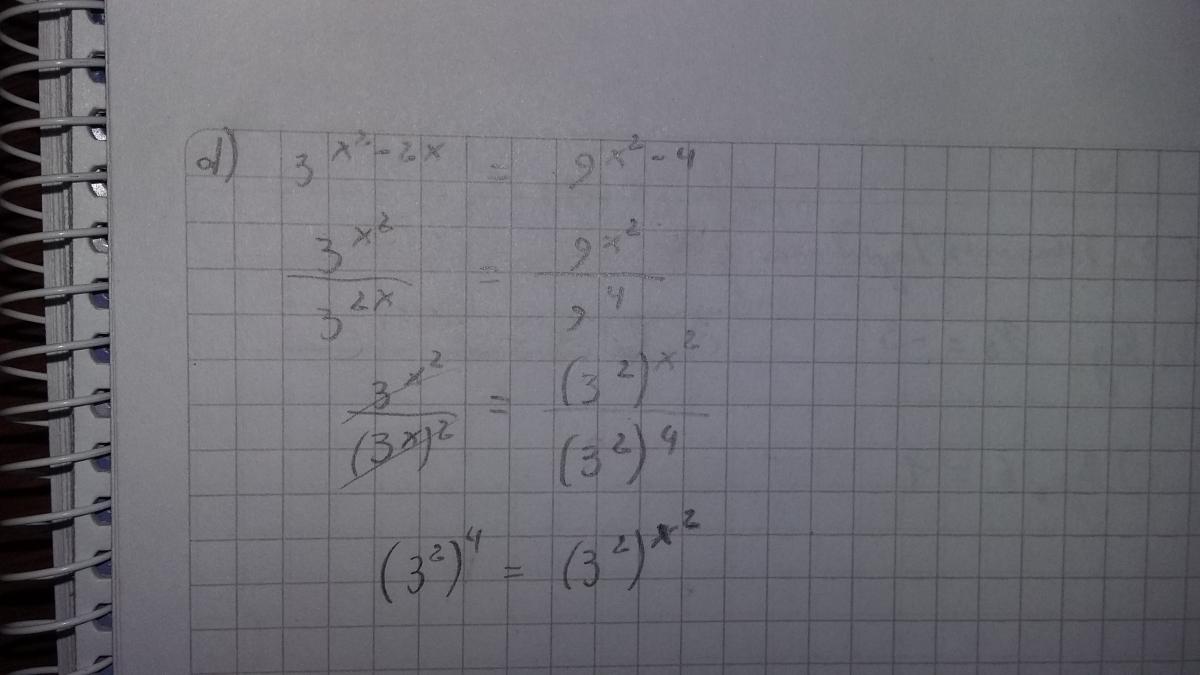 d) 3^(x²-2x) = 9^(x²-4)
3^(x²) / 3^(2x) = 9^(x²) / 9^4
3^(x²) / (3^x)² = (3²)^(x²) / (3²)^4
(3²)^4 = (3²)^(x²)